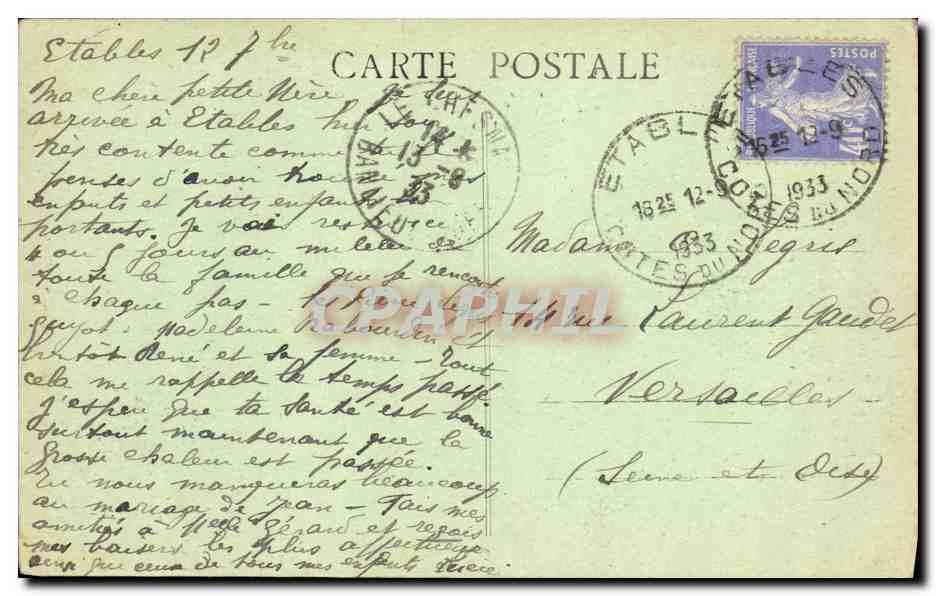 Etables 12 7bre
CARTE POSTALE
Ma chère petite Mère je suis
arrivée à Etables hier soir
très contente comme tu
penses d'avoir trouvé mes
enfants et petits enfants
portants. Je vais rester ici
4 ou 5 jours au milieu de
toute la famille que je rencontre
à chaque pas - les
Guyot. Madeleine
bientôt René et sa femme - Tout
cela me rappelle le temps passé.
J'espère que ta santé est bonne
surtout maintenant que la
grosse chaleur est passée.
Tu nous manqueras beaucoup
au mariage de Jean - Fais mes
amitiés à Melle Gérard et reçois
mes baisers les plus affectueux
ainsi que ceux de tous mes enfants
Madame Legris
14 rue Laurent Gaudet
Versailles
(Seine et Oise)
ETABLES
16 25 12-9
1933
COTES DU NORD
ETABLES
16 25 12-9
1933
COTES DU NORD
13 -9
POSTES
CPAPHIL